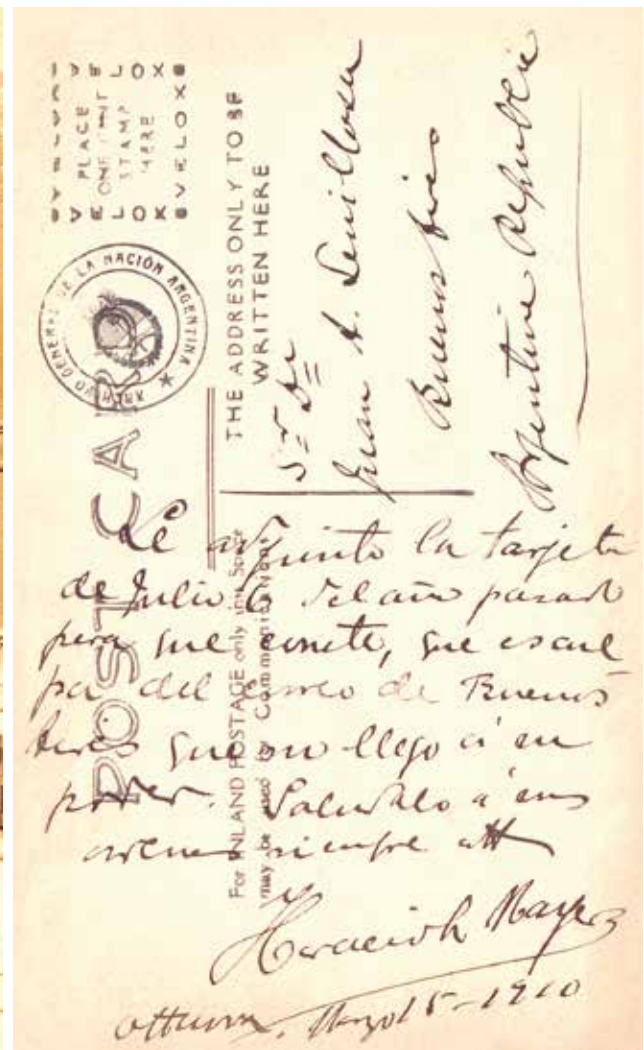 VELOX
PLACE
ONE CENT
STAMP
HERE
VELOX
ARCHIVO GENERAL DE LA NACIÓN ARGENTINA
POST CARD
THE ADDRESS ONLY TO BE
WRITTEN HERE
For INLAND POSTAGE only this Space
may be used for Communication
Sr Dr
Juan A.
Buenos Aires
Argentine Republic
Le adjunto la tarjeta
de Julio 6 del año pasado
para que conste, que es cul
pa del correo de Buenos
Aires que no llegó á su
poder. Saludalo á sus
ordenes siempre att
Horacio
Ottawa, Marzo 15-1910